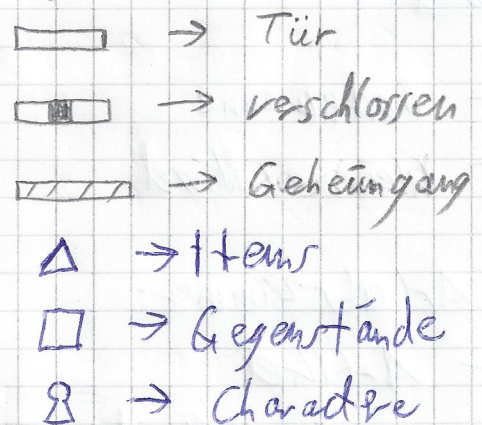 → Tür
→ verschlossen
→ Geheimgang
→ Items
→ Gegenstände
→ Charactere